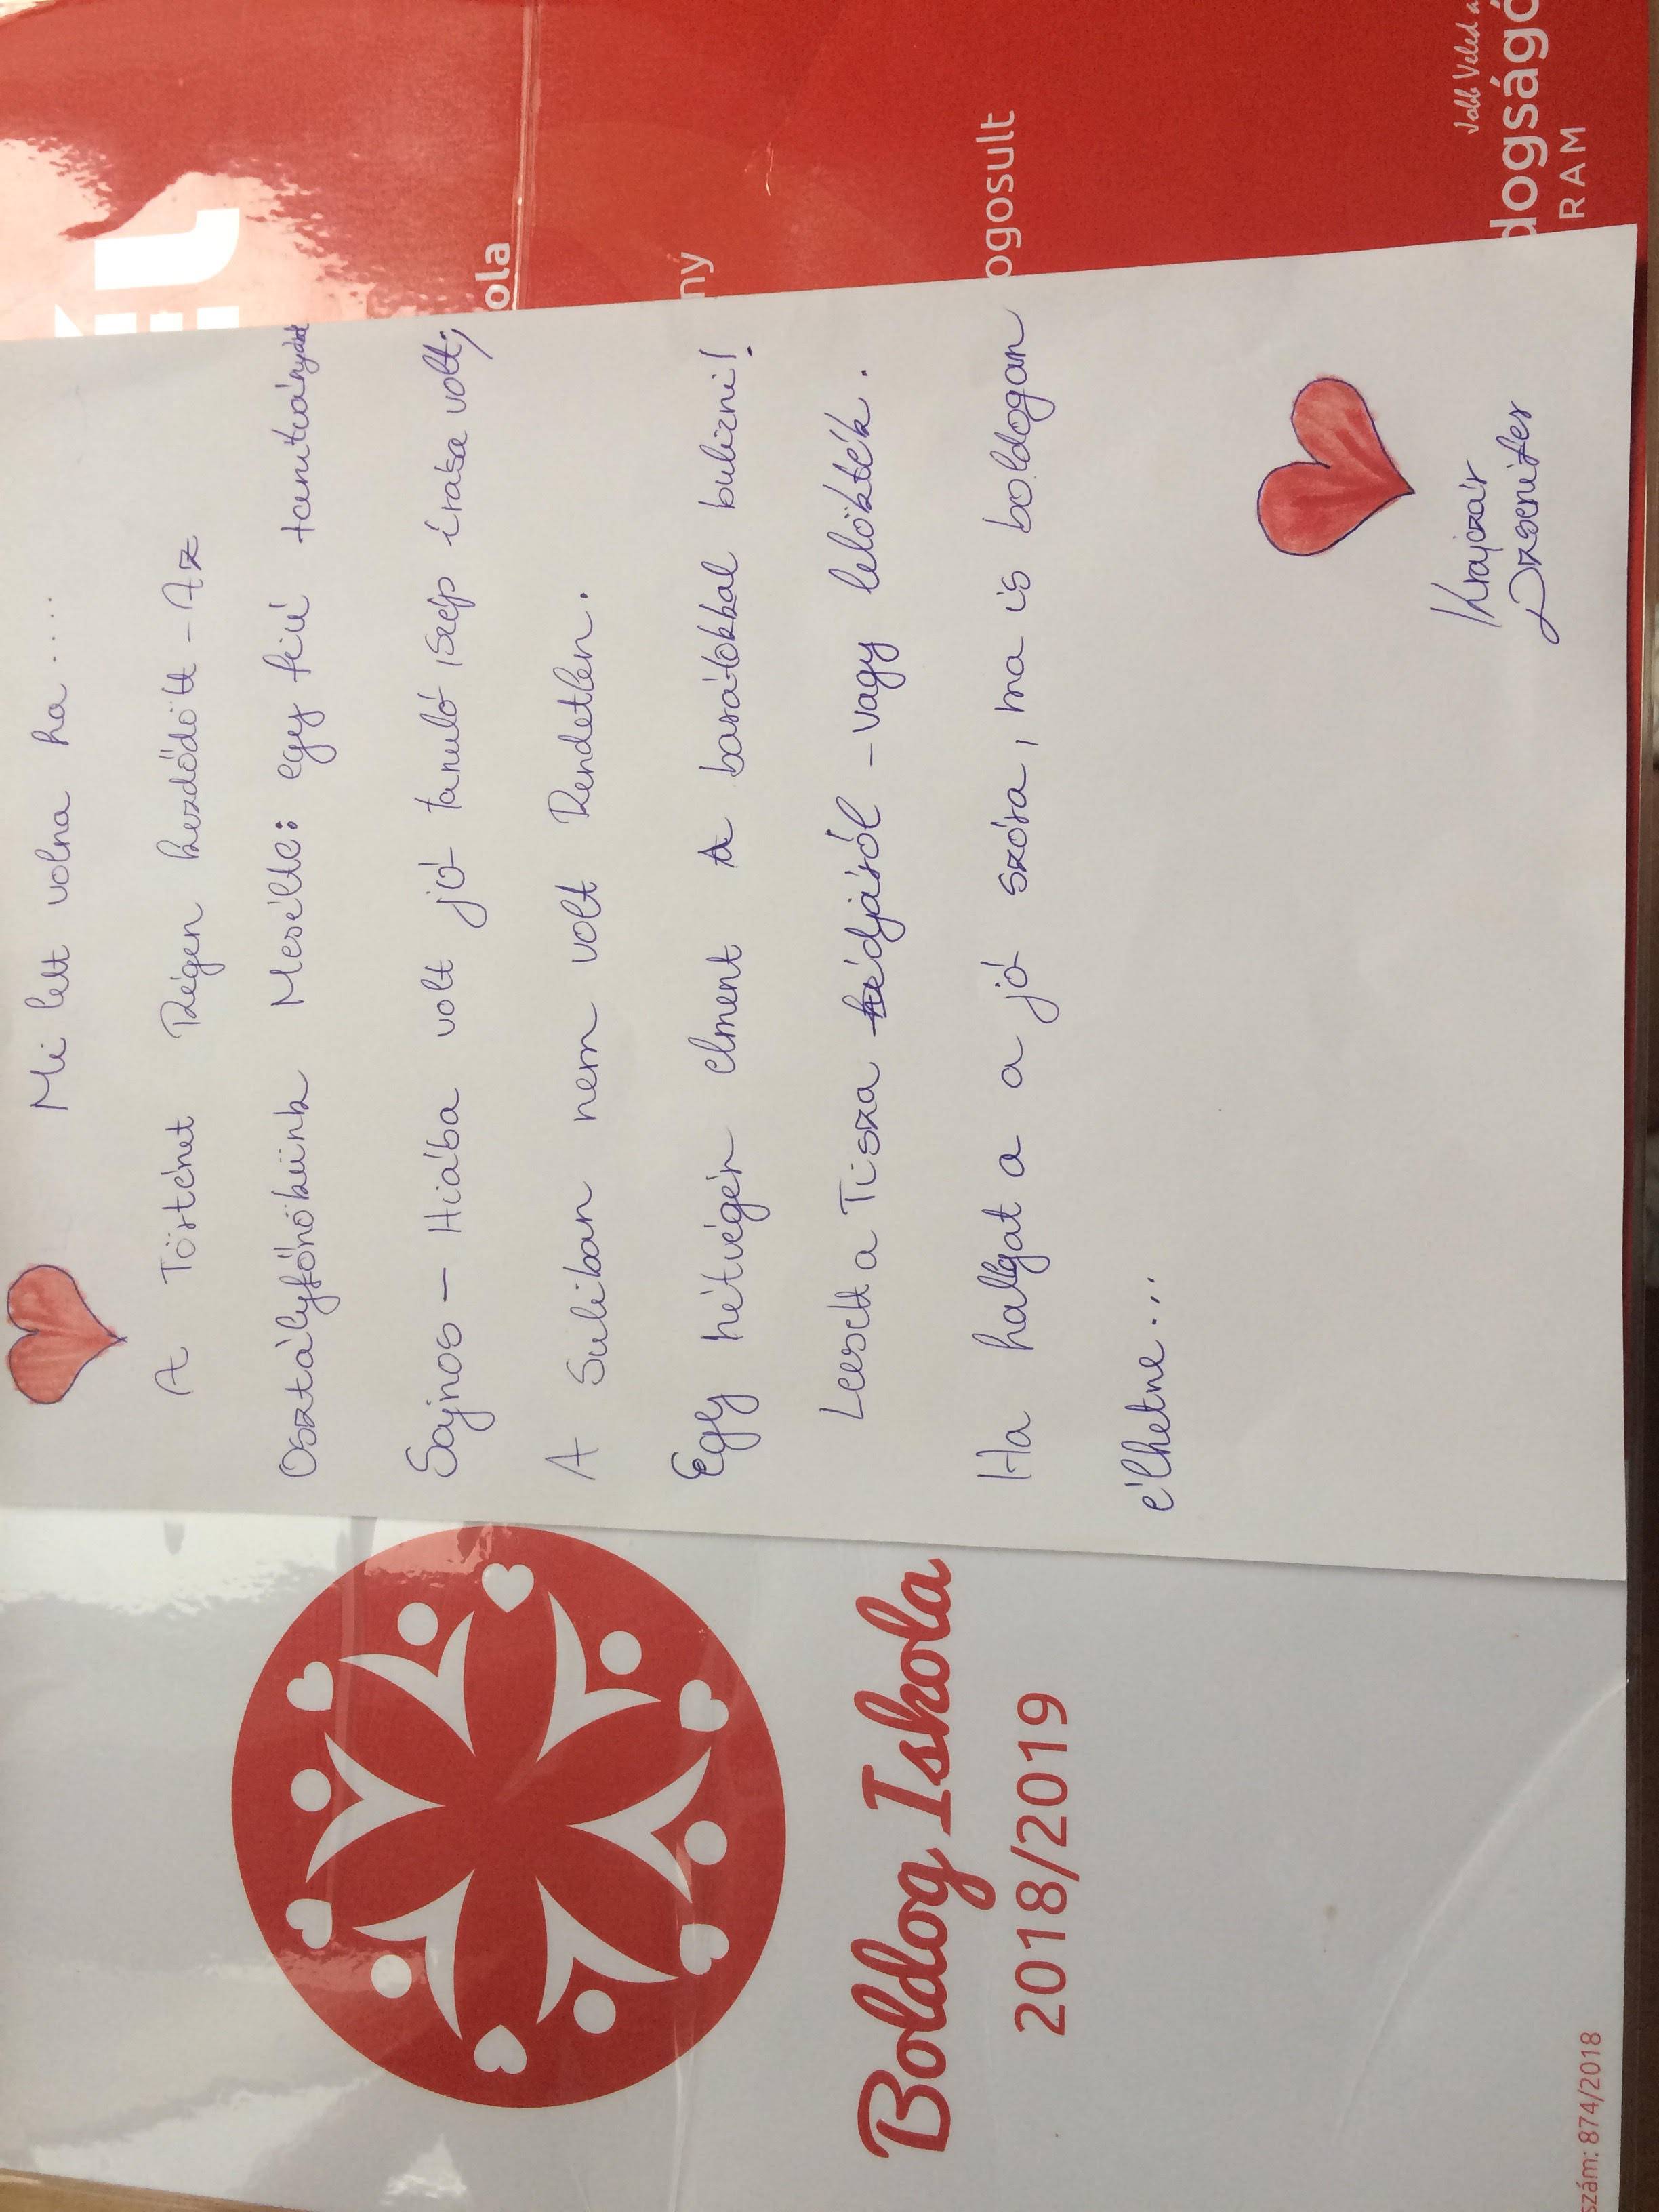 Mi lett volna ha....
A Történet Régen kezdődött - Az
Osztályfőnökünk Mesélte: egy fiú tanítványáról
Sajnos - Hiába volt jó tanuló, szép írása volt,
A Suliban nem volt Rendetlen.
Egy hétvégén elment A barátokkal bulizni!
Leesett a Tisza hídjáról - vagy lelökték.
Ha hallgat a jó szóra, ma is boldogan
élhetne...
Krajczár
Dzsenifer
Boldog Iskola
2018/2019
szám: 874/2018
ola
ny
ogosult
Jobb Veled a
dogságó
RAM